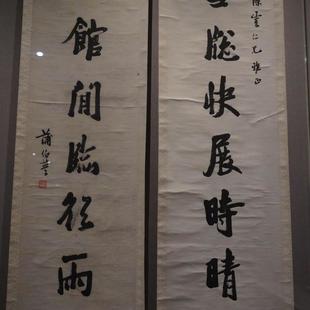 雲仁兄雅正
牕快展時晴
館閒臨雨
蒲伯英